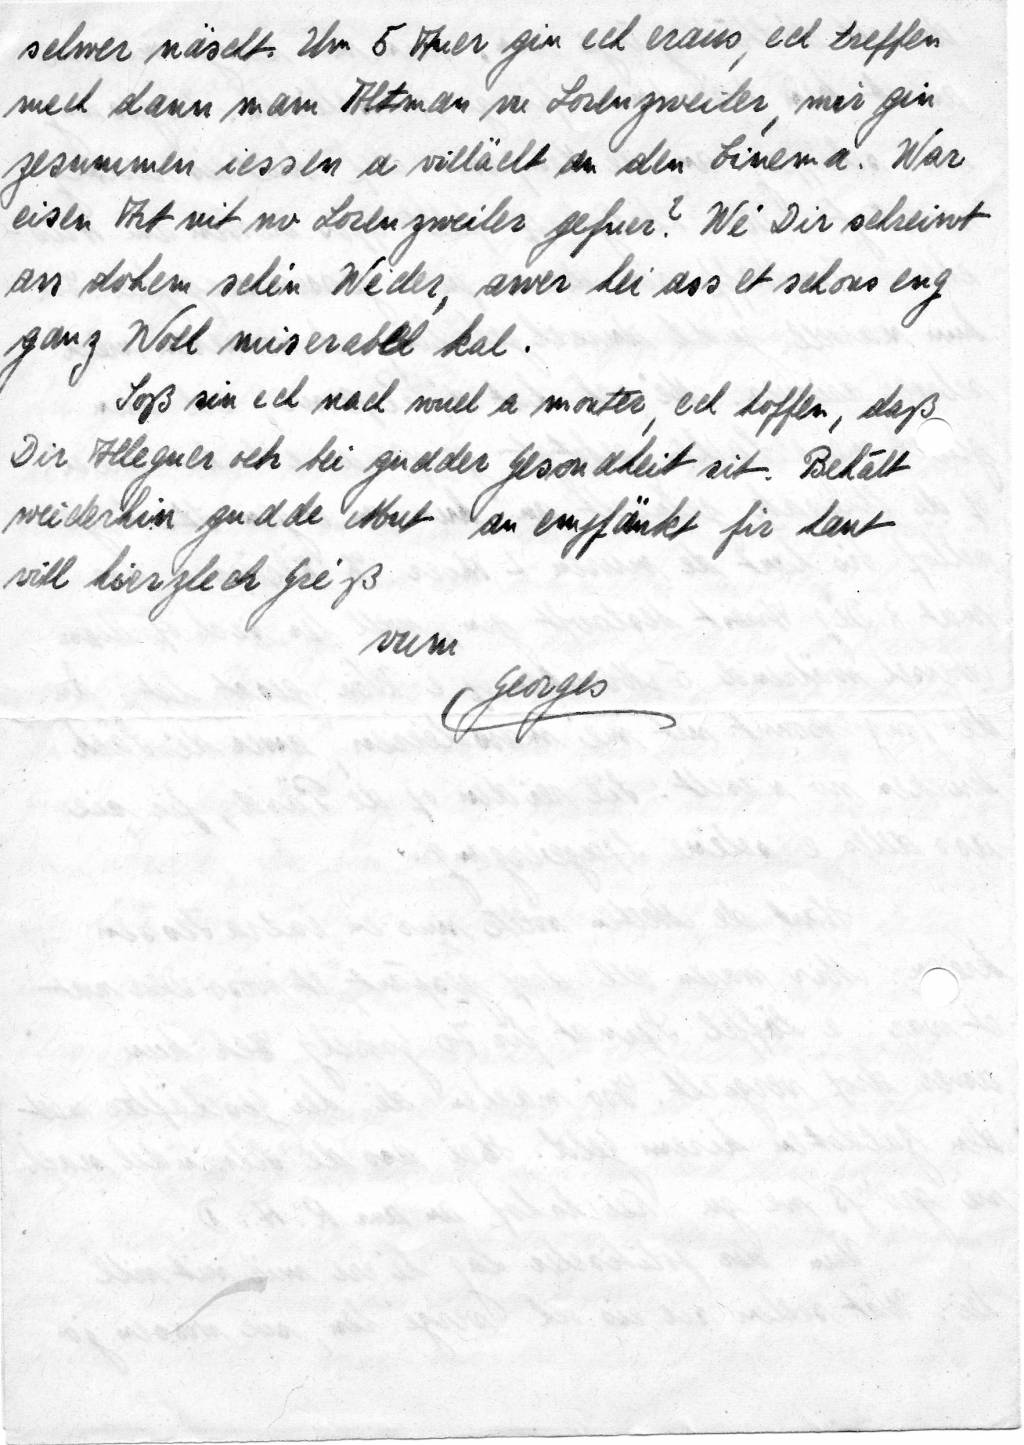 selwer näischt. Um 5 Auer gin ech eraus, ech treffen
mech dann mam Altman vu Lorenzweiler, mir gin
zesummen iessen a villäicht an den Cinema. War
eisen Art nit no Lorenzweiler gefuer? Wé Dir schreiwt
ass dohem schéin Wéder, awer hei ass et schons eng
ganz Woch miserabel kal.
Soß sin ech nach wuel a monter, ech hoffen, daß
Dir Alleguer och bei gudder Gesondheit sit. Behält
weiderhin gudde Mut an empfänkt fir haut
vill hierzlech Gréiß
vum
Georges